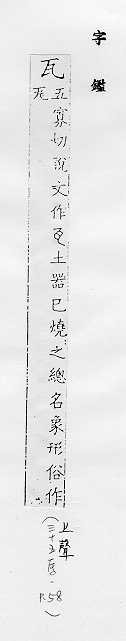 字鑑
瓦
五寡切說文作土器已燒之總名象形俗作
上聲
(三十五馬, P.58)